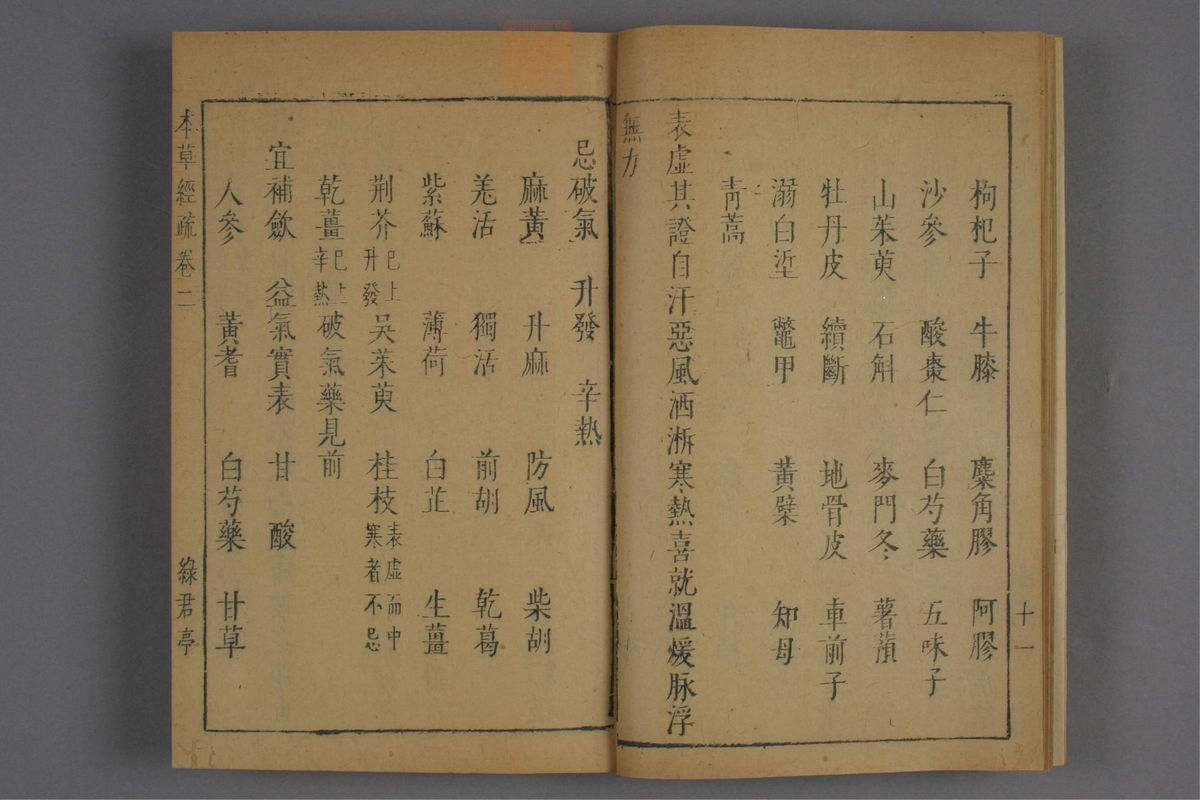 十一
枸杞子 牛膝 麋角膠 阿膠
沙參 酸棗仁 白芍藥 五味子
山茱萸 石斛 麥門冬 薯蕷
牡丹皮 續斷 地骨皮 車前子
溺白垽 鼈甲 黃檗 知母
青蒿
表虛其證自汗惡風洒淅寒熱喜就溫煖脉浮
無力
忌破氣 升發 辛熱
麻黃 升麻 防風 柴胡
羗活 獨活 前胡 乾葛
紫蘇 薄荷 白芷 生薑
荆芥巳上升發 吳茱萸 桂枝表虛而中寒者不忌
乾薑巳上辛熱 破氣藥見前
宜補斂 益氣實表 甘 酸
人參 黃耆 白芍藥 甘草
本草經疏卷二 綠君亭